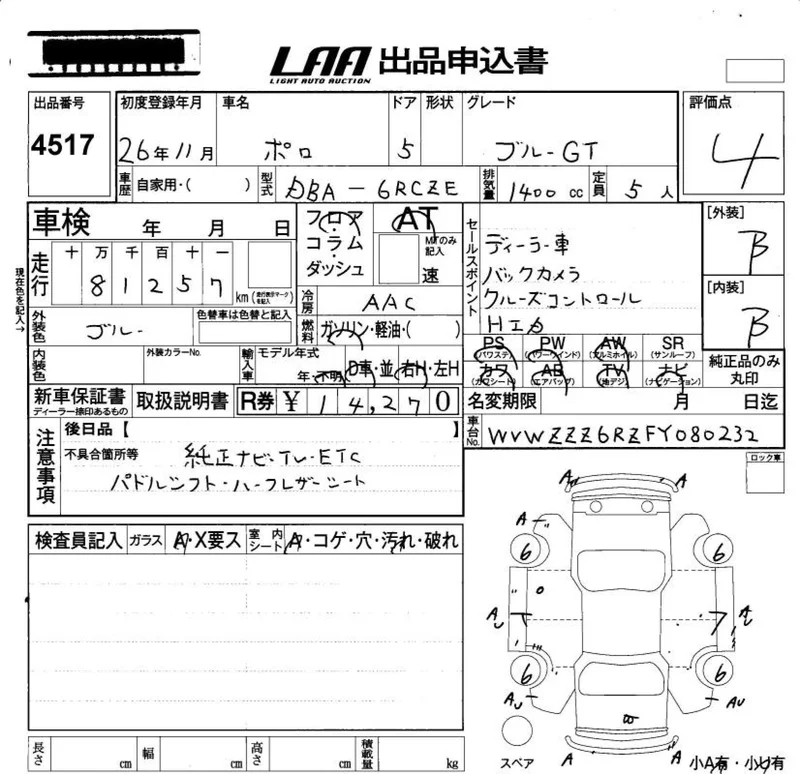 LAA 出品申込書
LIGHT AUTO AUCTION
出品番号 4517
初度登録年月 26年11月
車名 ポロ
ドア 5
形状
グレード ブルーGT
評価点 4
車歴 自家用・( )
型式 DBA-6RCZE
排気量 1400cc
定員 5人
車検 年 月 日
フロア
コラム
ダッシュ
AT
MTのみ記入
速
セールスポイント
ディーラー車
バックカメラ
クルーズコントロール
HID
[外装] B
[内装] B
現在色を記入→
走行 十 万 千 百 十 一
8 1 2 5 7 km (走行表示マークを記入)
冷房 AAC
燃料 ガソリン・軽油・( )
外装色 ブルー
色替車は色替と記入
PS (パワステ) PW (パワーウインド) AW (アルミホイル) SR (サンルーフ)
カワ (カワシート) AB (エアバッグ) TV (地デジ) ナビ (ナビゲーション)
純正品のみ丸印
内装色
外装カラーNo.
輸入車 モデル年式 年・不明 D車・並 右H・左H
新車保証書
ディーラー捺印あるもの
取扱説明書
R券 ¥ 14,270
名変期限 月 日迄
車台No. WVWZZZ6RZFY080232
注意事項
後日品【 】
不具合箇所等
純正ナビ・TV・ETC
パドルシフト・ハーフレザーシート
ロック車
検査員記入 ガラス A・X要ス 室内シート A・コゲ・穴・汚れ・破れ
A A
A
6 6
AU
6 6
AU AU
A A
スペア
小A有・小U有
長さ cm 幅 cm 高さ cm 積載量 kg